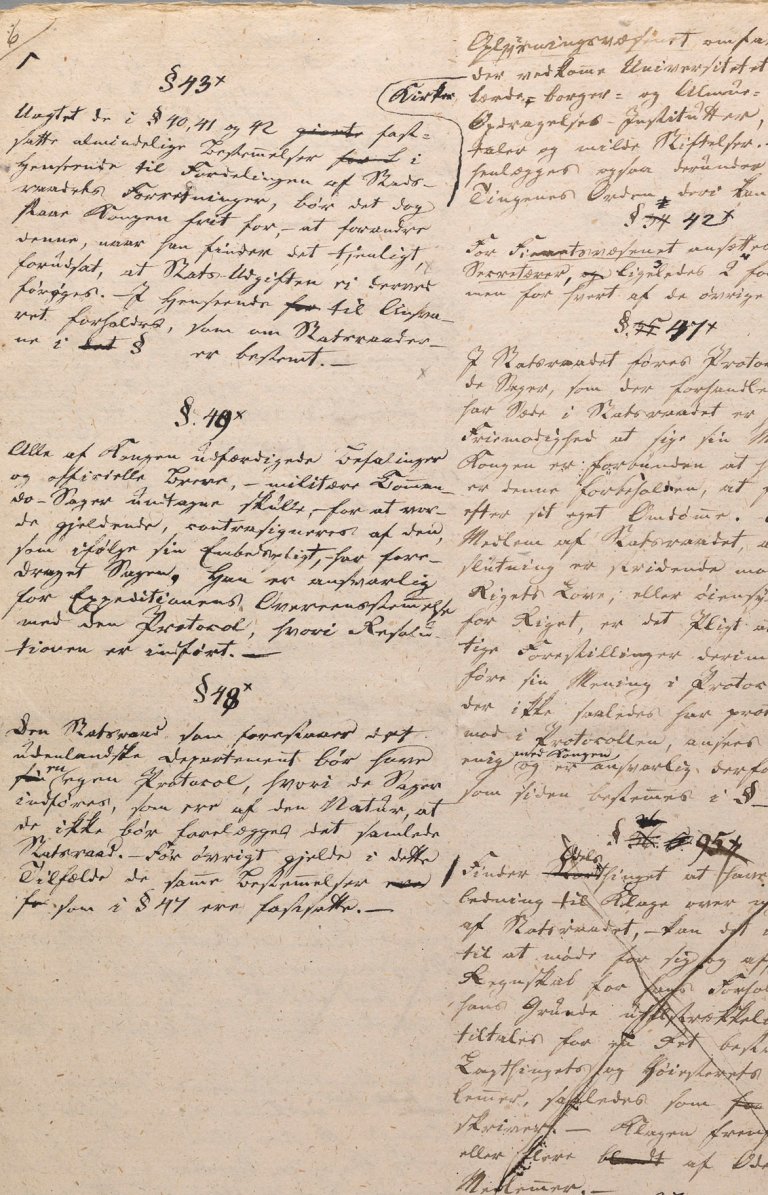 6
§ 43
Uagtet de i § 40, 41 og 42 giorte fast=
satte almindelige Bestemmelser i
Henseende til Fordelingen af Stats-
raadets Forretninger, bør det dog
staae Kongen frit for, at forandre
denne, naar han finder det tjenligt,
forudsat, at Stats-Udgiften ei derved
forøges. – I Henseende for til Ansva-
ret forholdes, som om Statsraader-
ne i det § er bestemt. –
§. 49
Alle af Kongen udfærdigede Befalinger
og officielle Breve, – militære Komman-
do-Sager undtagne skulle, for at vor-
de gjeldende, contrasigneres af den,
som ifølge sin Embedspligt, har fore-
draget Sagen. Han er ansvarlig
for Expeditionens Overeensstemmelse
med den Protocol, hvori Resolu-
tionen er indført. –
§ 48
Den Statsraad som forestaaer det
udenlandske Departement bør have
en egen Protocol, hvori de Sager
indføres, som ere af den Natur, at
de ikke bør forelægges det samlede
Statsraad. – For øvrigt gjelde i dette
Tilfælde de samme Bestemmelser
som i § 47 ere fastsatte. –
Oplysningsvæsenet omfa
der vedkomme Universitetet
Kirke
lærde, borger= og Almue=
Opdragelses-Institutter,
taler og milde Stiftelser.
henlægges ogsaa derunder
Tingenes Orden, deri kan
§ 42
For Finantsvæsenet ansættes
Secretærer, ligeledes 2 fo
men for hvert af de øvrige
§. 47
I Statsraadet føres Protoc
de Sager, som der forhandle
har Sæde i Statsraadet er
Friemodighed at sige sin M
Kongen er forbunden at h
er denne forbeholden, at
efter sit eget Omdømme.
Medlem af Statsraadet a
slutning er stridende mo
Rigets Love, eller øiensy
for Riget, er det Pligt a
tige Forestillinger derim
føre sin Mening i Protoc
der ikke saaledes har pro
mod i Protocollen, ansees
med Kongen
enig og er ansvarlig derfo
som siden bestemmes i §
§ 95
Odels
Finder thinget at have
ledning til Klage over
af Statsraadet, – kan det
til at møde for sig og af
Regnskab for hans Forhol
hans Grunde utilstrækkel
tiltales for en Ret best
Lagthingets og Høiesterets
lemmer, saaledes som
skriver. – Klagen frem
eller flere af Ode
Medlemmer. –